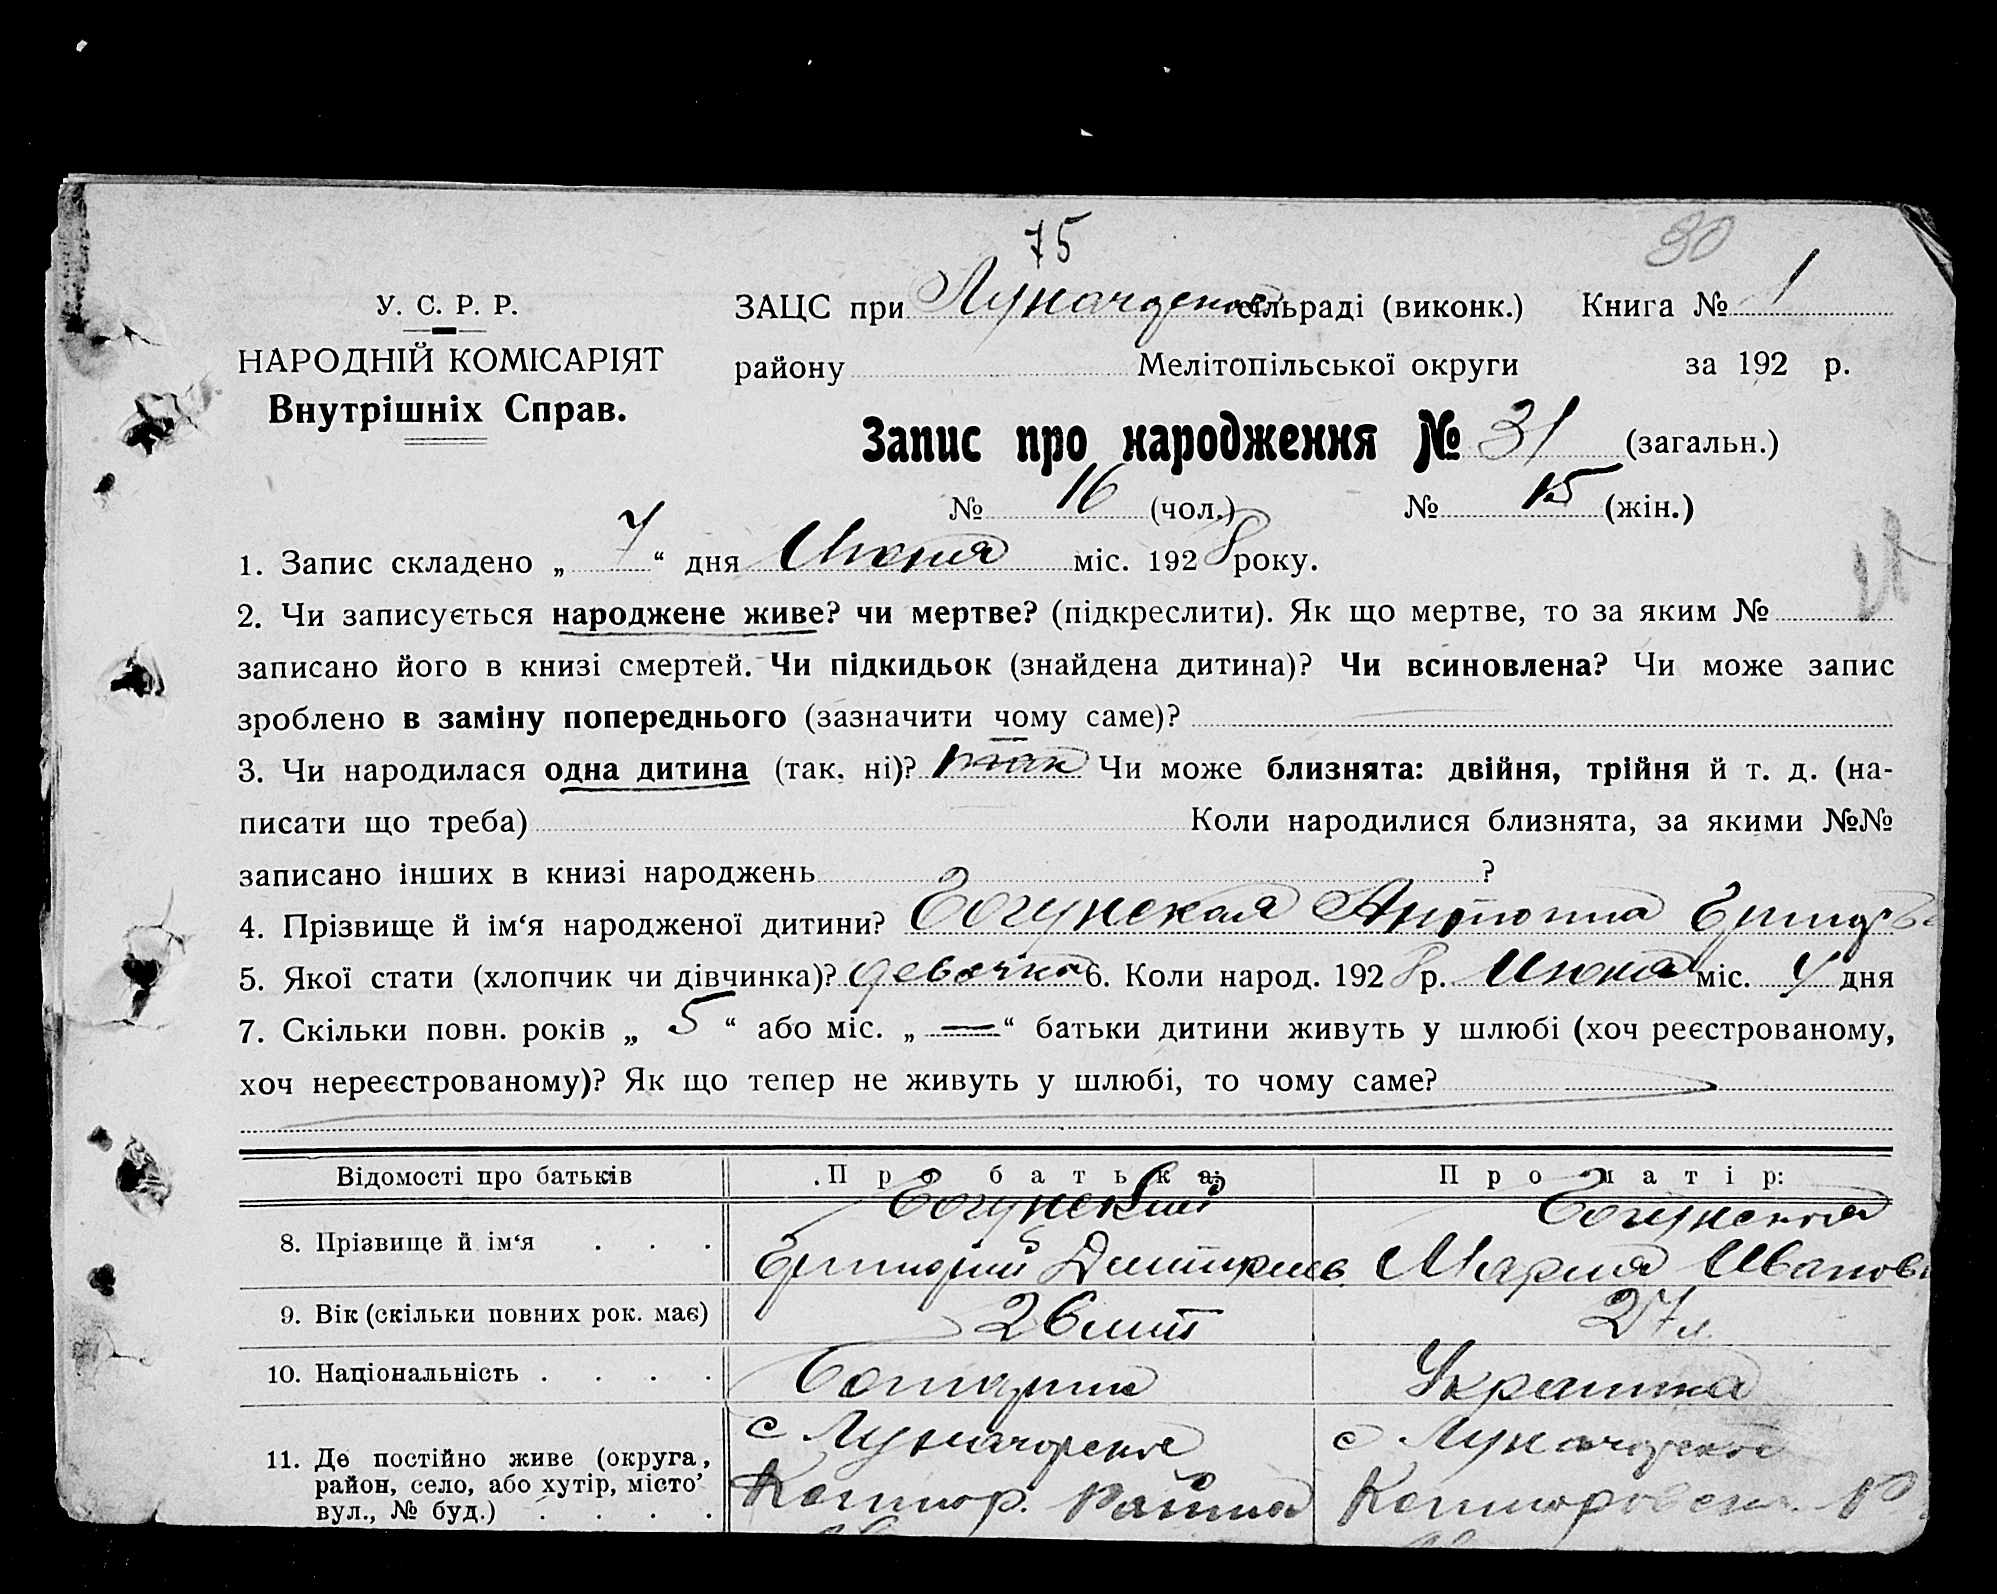 75
30
У. С. Р. Р.
ЗАЦС при Луначарской сільраді (виконк.) Книга № 1
НАРОДНІЙ КОМІСАРІЯТ
району Мелітопільської округи за 192 р.
Внутрішніх Справ.
Запис про народження № 31 (загальн.)
№ 16 (чол.) № 15 (жін.)
1. Запис складено „ 7 “ дня Июня міс. 1928 року.
2. Чи записується народжене живе? чи мертве? (підкреслити). Як що мертве, то за яким №
записано його в книзі смертей. Чи підкидьок (знайдена дитина)? Чи всиновлена? Чи може запис
зроблено в заміну попереднього (зазначити чому саме)?
3. Чи народилася одна дитина (так, ні)? так Чи може близнята: двійня, трійня й т. д. (на-
писати що треба) Коли народилися близнята, за якими №№
записано інших в книзі народжень ?
4. Прізвище й ім‘я народженої дитини?
5. Якої стати (хлопчик чи дівчинка)? девочка 6. Коли народ. 1928 р. Июня міс. 4 дня
7. Скільки повн. років „ 5 “ або міс. „ — “ батьки дитини живуть у шлюбі (хоч реєстрованому,
хоч нереєстрованому)? Як що тепер не живуть у шлюбі, то чому саме?
Відомості про батьків Про батька: Про матір:
8. Прізвище й ім‘я Григорий Дмитриев. Мария Иванов
9. Вік (скільки повних рок. має) 26 лит 27 л.
10. Національність Болгарин Украинка
11. Де постійно живе (округа, с Луначарское с Луначарское
район, село, або хутір, місто, района
вул., № буд.)